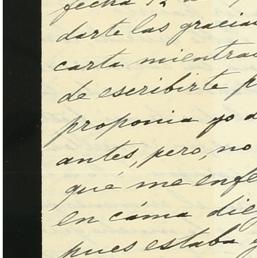 fecha 12 d
darte las gracia
carta mientra
de escribirte p
proponia yo a
antes, pero, no
qué me enfe
en cáma die
pues estaba